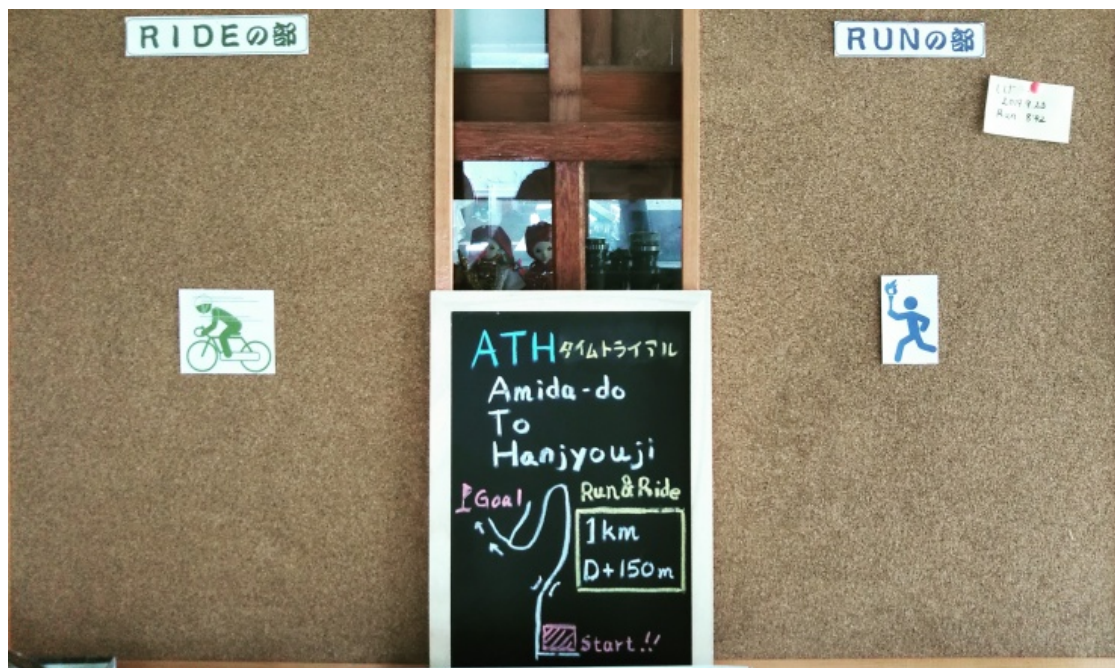 RIDEの部
RUNの部
2019.9.23
Run 8:42
ATH タイムトライアル
Amida-do
To
Hanjyouji
Goal
Run&Ride
1km
D+150m
Start!!